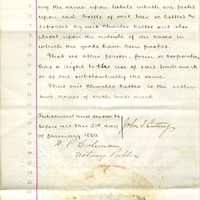 the same upon labels which are pasted
upon each bottle of said beer as bottled &
exported by said Charles and also
placed upon the outside of the cases in
which the goods have been packed.
That no other person, firm or corporation
has a right to the use of said trade mark
or of one substantially the same.
That said Charles is the exclu-
sive owner of said trade mark
Subscribed and sworn to
before me this 2nd day
of January 1880.
John T. Cutting
Coleman
Notary Public